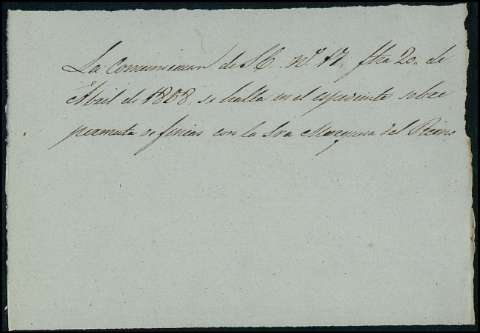 La Comunicacion de S.C. nº 17. fha 20. de
Abril de 1808 se halla en el espediente sobre
permuta de fincas con la Sra Marquesa del